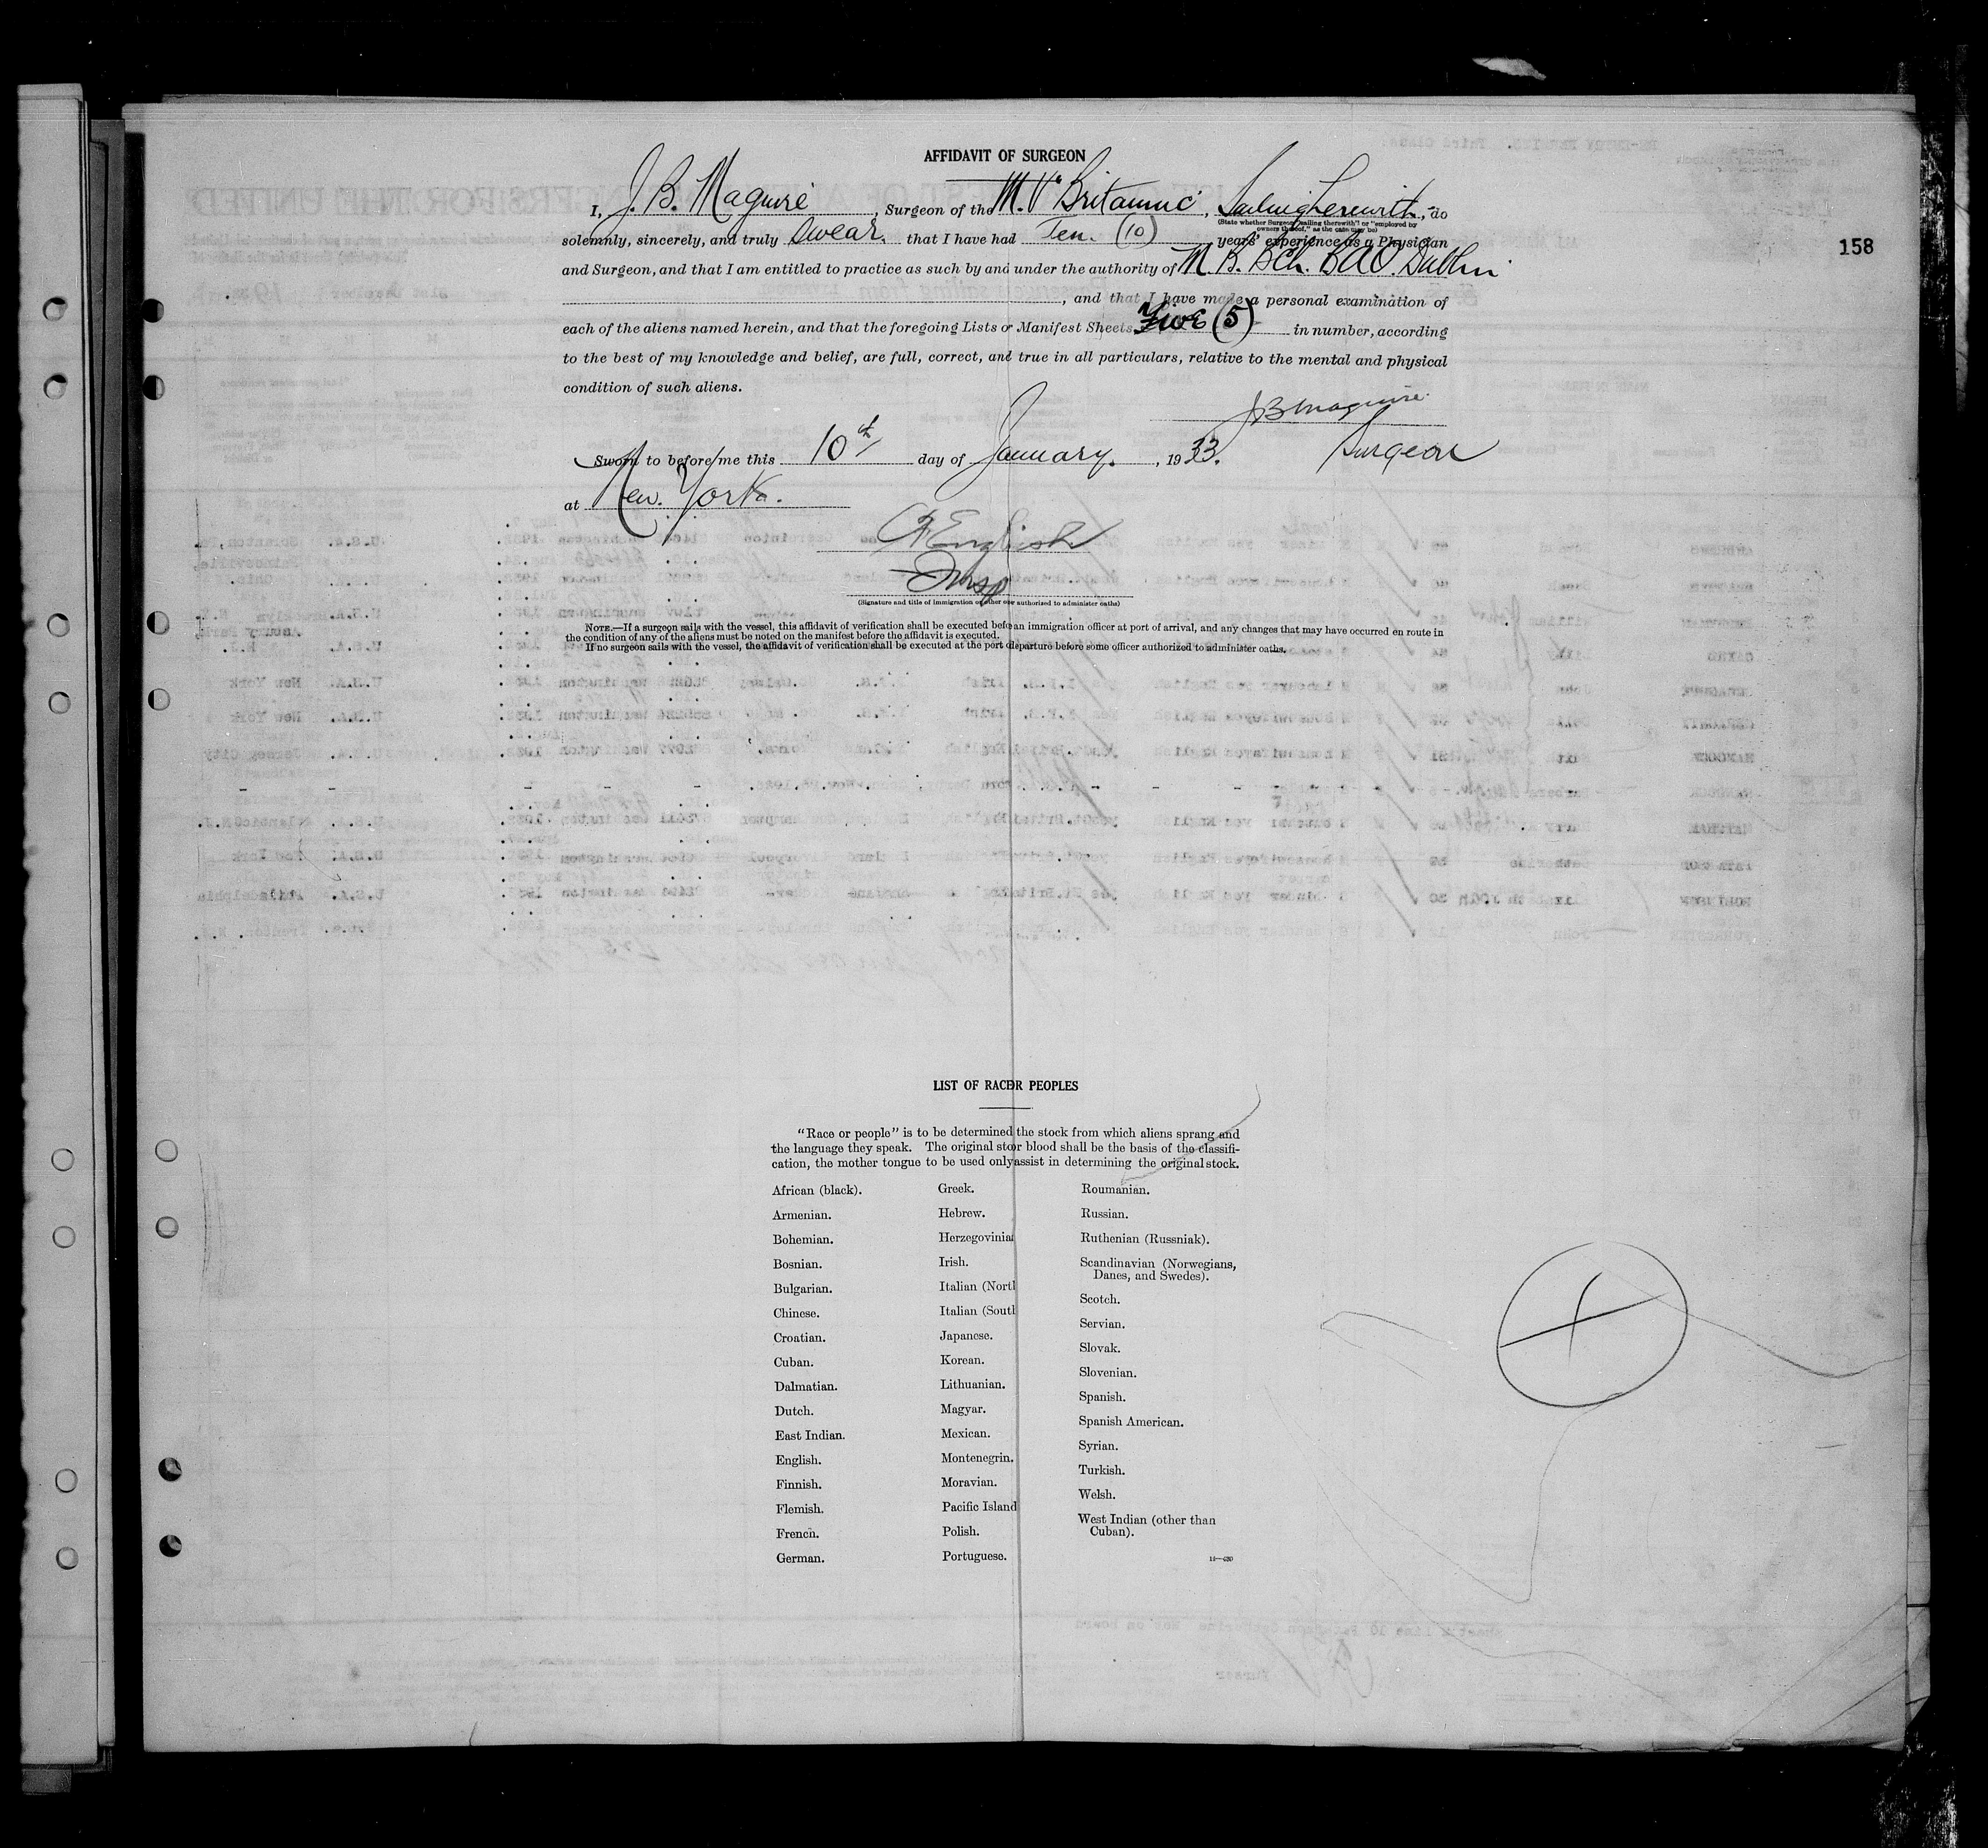 AFFIDAVIT OF SURGEON
I, J. B. Maguire, Surgeon of the M.V. Britannic, Sailing therewith, do
(State whether Surgeon "sailing therewith" or "employed by
owners thereof," as the case may be)
solemnly, sincerely, and truly swear. that I have had Ten. (10) years' experience as a Physician
and Surgeon, and that I am entitled to practice as such by and under the authority of M.B. BCh. BAO. Dublin
, and that I have made a personal examination of
each of the aliens named herein, and that the foregoing Lists or Manifest Sheets, Five (5) in number, according
to the best of my knowledge and belief, are full, correct, and true in all particulars, relative to the mental and physical
condition of such aliens.
JB Maguire
Surgeon
Sworn to before me this 10th day of January, 1933.
at New York.
English
Insp
(Signature and title of immigration or other authorized to administer oaths)
NOTE.—If a surgeon sails with the vessel, this affidavit of verification shall be executed before an immigration officer at port of arrival, and any changes that may have occurred en route in
the condition of any of the aliens must be noted on the manifest before the affidavit is executed.
If no surgeon sails with the vessel, the affidavit of verification shall be executed at the port departure before some officer authorized to administer oaths.
158
LIST OF RACE OR PEOPLES
"Race or people" is to be determined the stock from which aliens sprang and
the language they speak. The original stoor blood shall be the basis of the classifi-
cation, the mother tongue to be used only assist in determining the original stock.
African (black).
Armenian.
Bohemian.
Bosnian.
Bulgarian.
Chinese.
Croatian.
Cuban.
Dalmatian.
Dutch.
East Indian.
English.
Finnish.
Flemish.
French.
German.
Greek.
Hebrew.
Herzegovinia
Irish.
Italian (North
Italian (South
Japanese.
Korean.
Lithuanian.
Magyar.
Mexican.
Montenegrin.
Moravian.
Pacific Island
Polish.
Portuguese.
Roumanian.
Russian.
Ruthenian (Russniak).
Scandinavian (Norwegians,
Danes, and Swedes).
Scotch.
Servian.
Slovak.
Slovenian.
Spanish.
Spanish American.
Syrian.
Turkish.
Welsh.
West Indian (other than
Cuban).